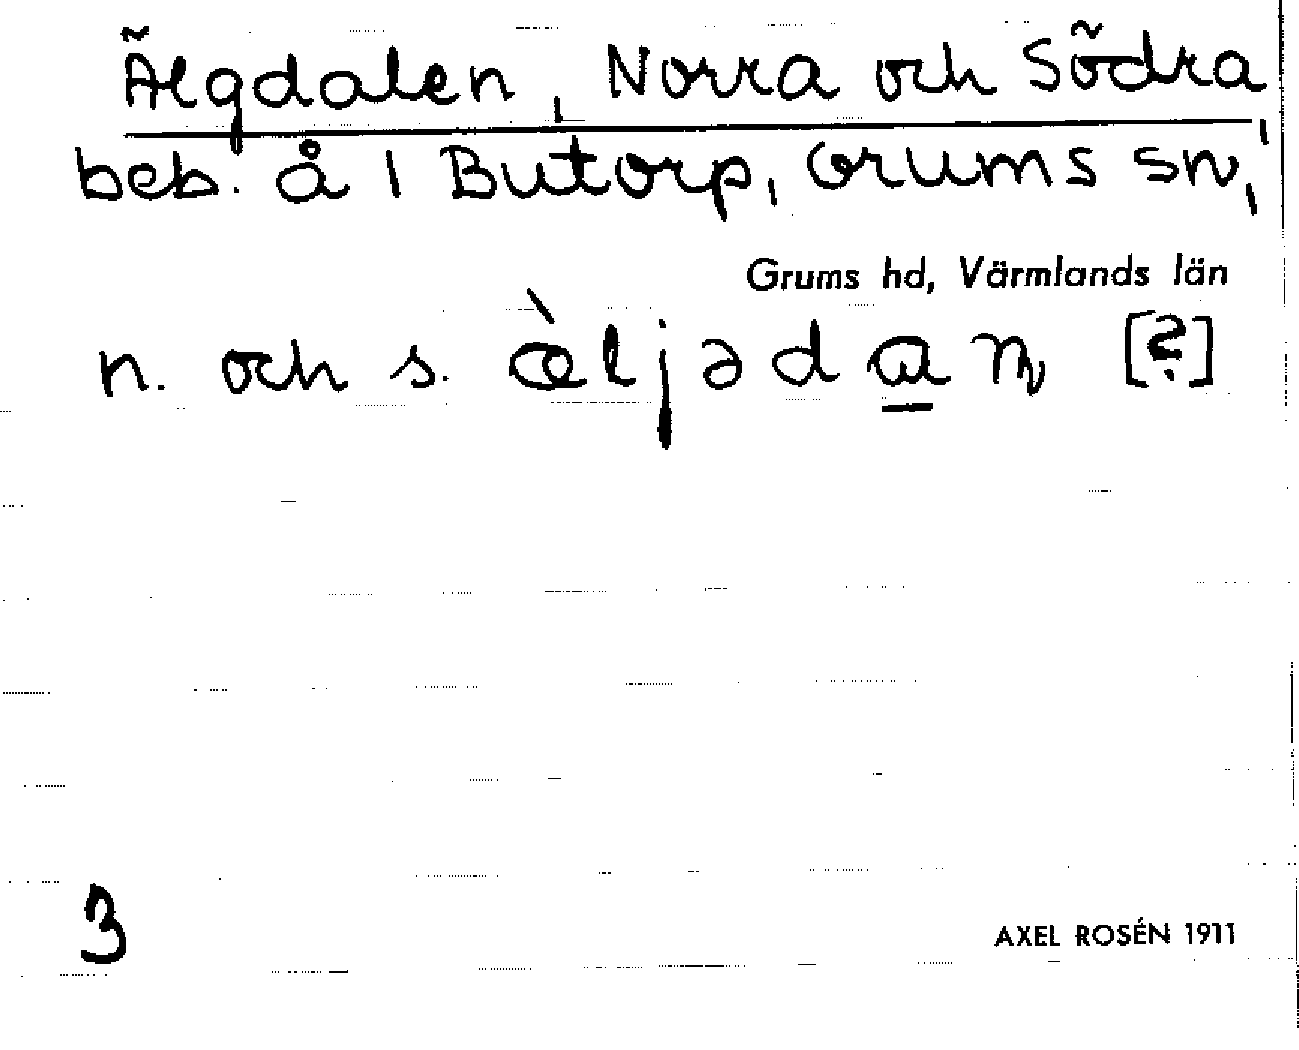 Älgdalen, Norra och Södra,
beb. å 1 Butorp, Grums sn,
Grums hd, Värmlands län
n. och s. æ̀ljəda̲n [?]
3
AXEL ROSÉN 1911